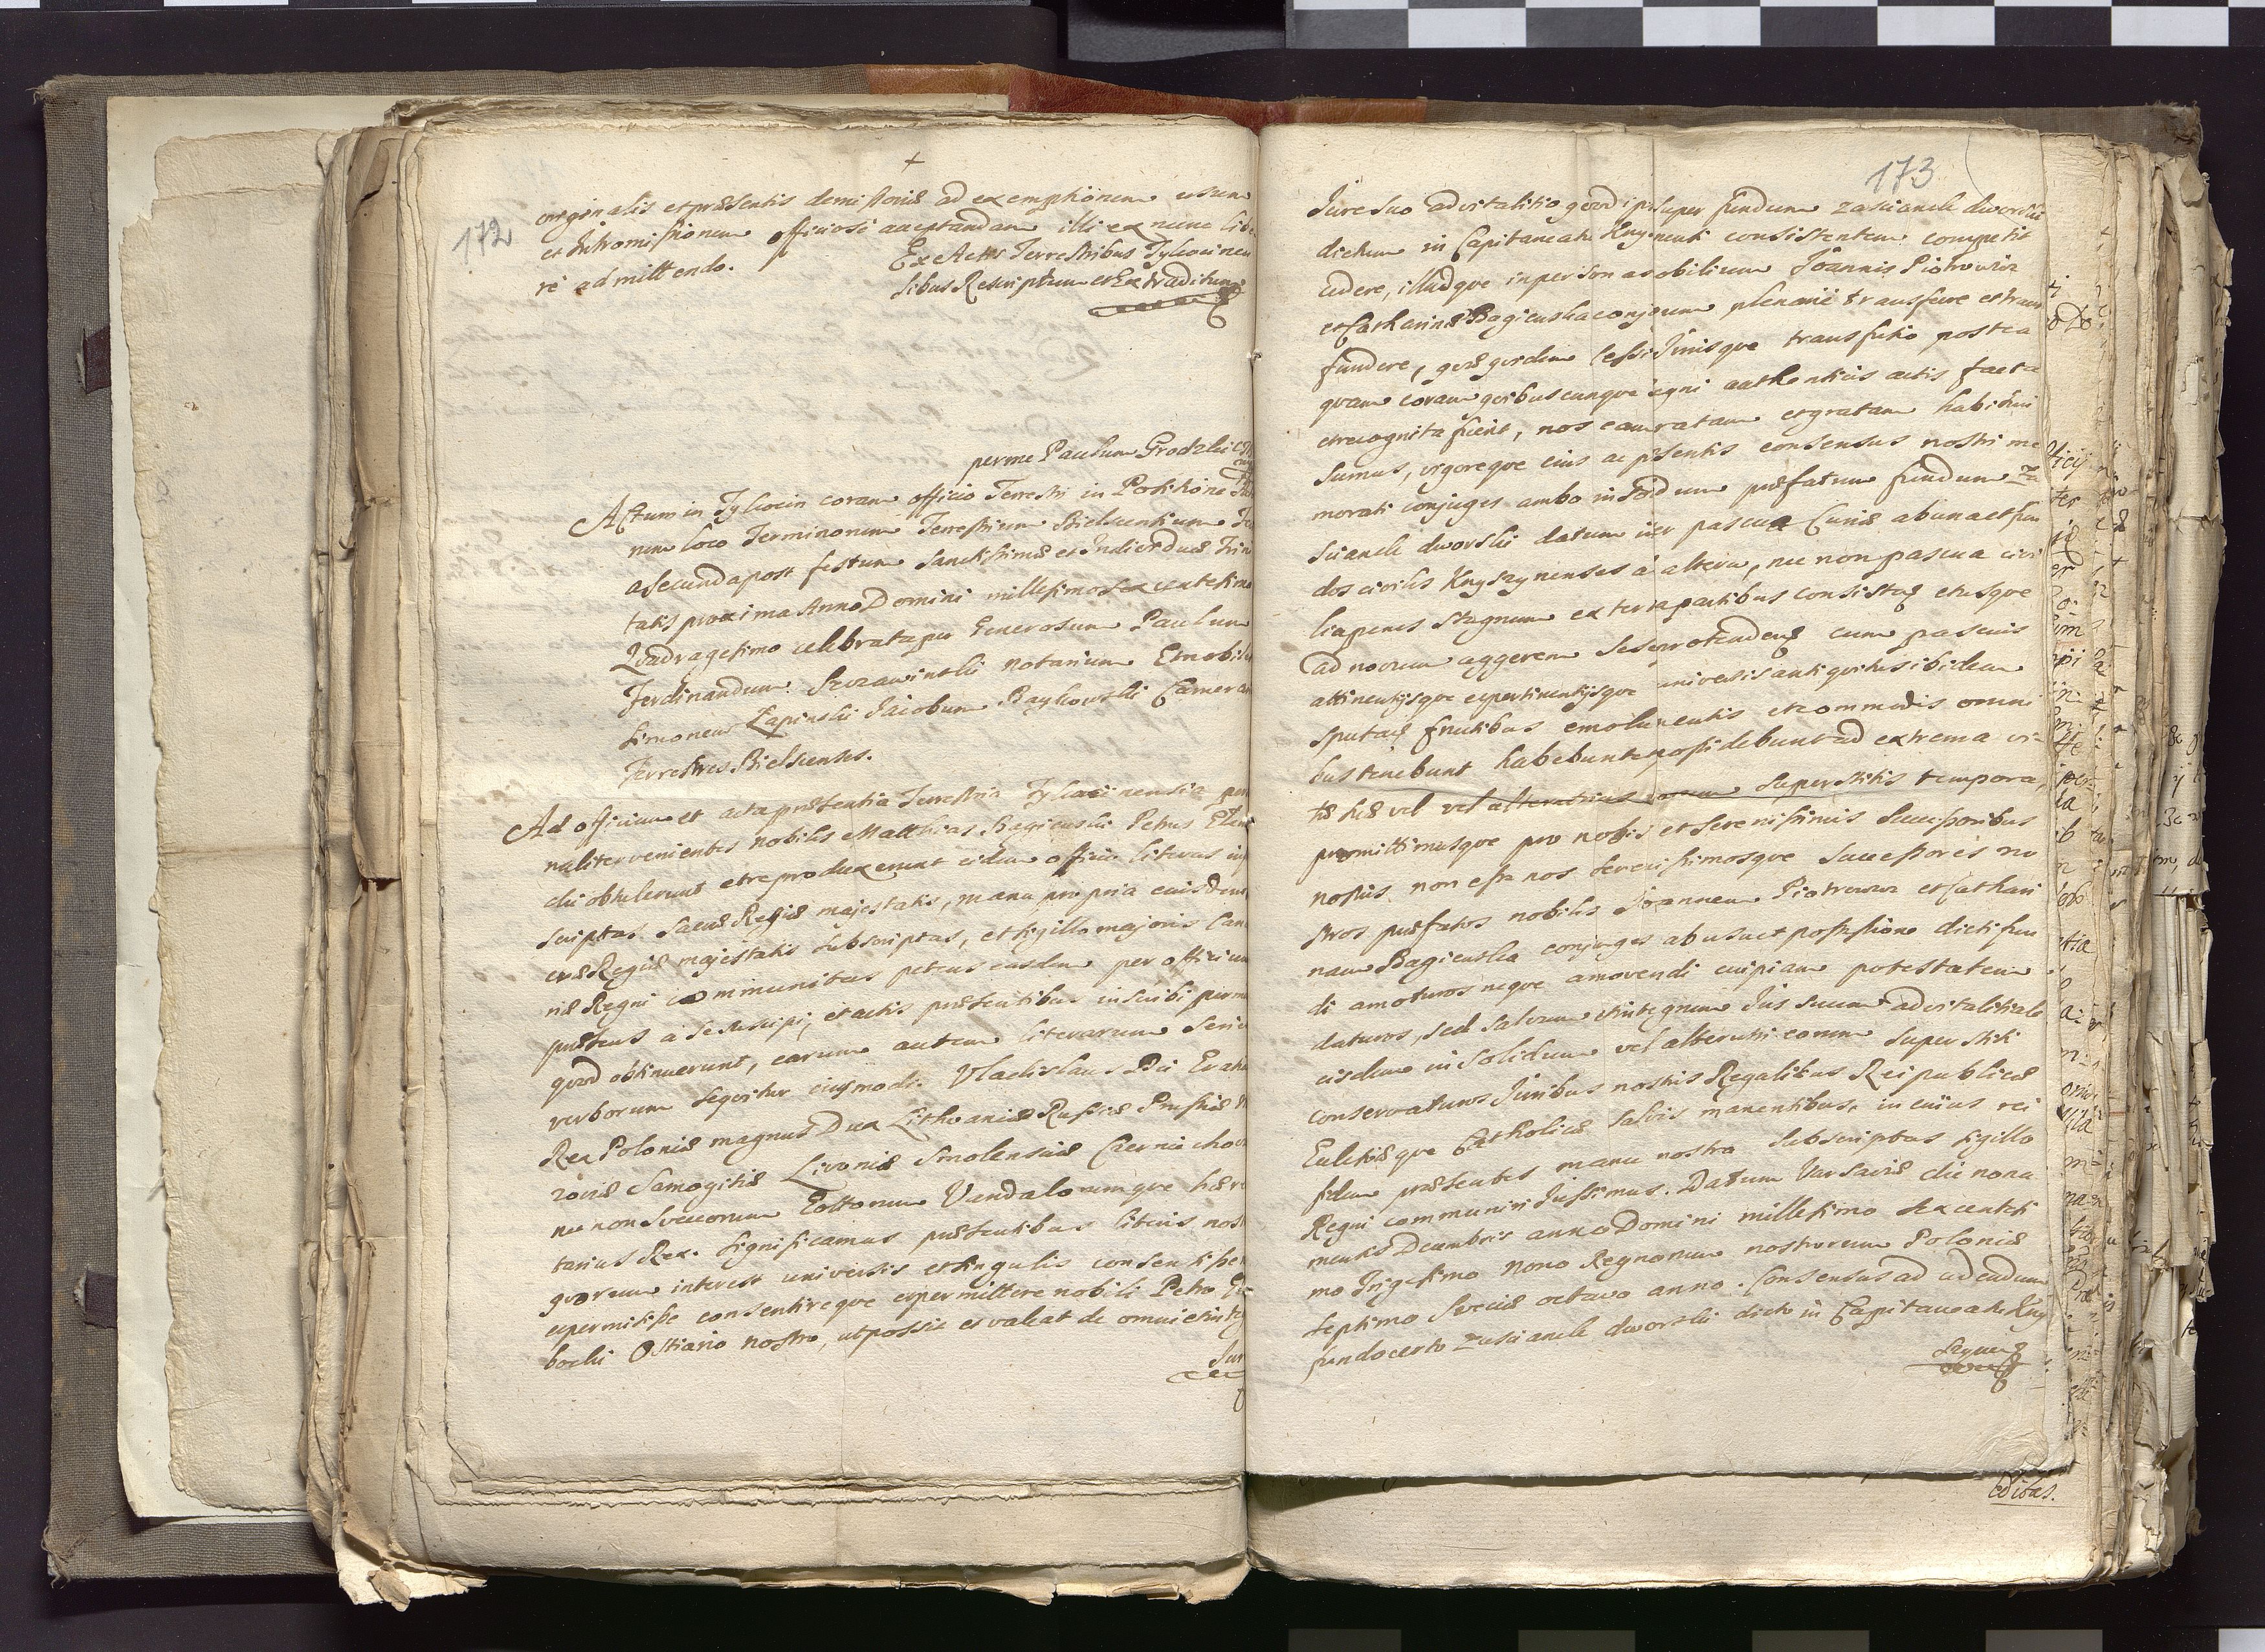 172
originalis et præsentis demissionis ad exemptionem usum
et Intromissionem officiosi acceptandam illi ex nunc libe
re admittendo.
Ex Actis Terrestribus Tykocinen
sibus Rescriptum et Extraditum
per me Paulum Grodzki
Actum in Tykocin coram officio Terrestri in Positione
num loco Terminorum Terrestrium Bielscentium
a secunda post festum Sanctissimæ et Individuæ Trini
tatis proxima Anno Domini millesimo sexcentesimo
Quadragesimo celebrata per Generosum Paulum
Ferdinandum Szczawinski notarium Et nobiles
Simonem Łapinski Jacobum Baykowski Camerar
Terrestres Bielscenses.
Ad officium et acta præsentia Terrestria Tykocinensia per
naliter venientes nobiles Matthias Bagienski Petrus
cki obtulerunt et reproduxerunt eidem officio literas in
scriptas Sacræ Regiæ majestatis, manu propria eiusdem
cræ Regiæ majestatis subscriptas, et sigillo majoris Can
riæ Regni communitas petens easdem per officium
præsens a se suscipi, et actis præsentibus inscribi permi
quod obtinuerunt, earum autem literarum seri
verborum sequitur eiusmodi. Vladislaus Dei Gratia
Rex Poloniæ magnus Dux Lithvaniæ Russiæ Prussiæ
zoviæ Samogitiæ Livoniæ Smolensciæ Czerniecho
nec non Svecorum Gottorum Vandalorumque hære
tarius Rex. Significamus præsentibus literis nos
quorum interest universis et singulis consensisse
et permisisse consentireque et permittere nobili Petro
bocki Ostiario nostro, ut possit et valeat de omni et integ
Jur
173
Jure suo advitalitio quod ipsi super fundum zascianek dworski
dictum in Capitaneatu Knysinensi consistentem competit
cedere, illudque in personas nobilium Joannis Piotrowicz
et Catharinæ Bagienska conjugum plenarie transferre et trans
fundere, quæ quidem cessio Jurisque transfusio postea
quam coram quibuscunque Regni authenticis actis facta
et recognita fuerit, nos eam ratam et gratam habituri
sumus, vigoreque eius ac præsentis consensus nostri me
morati conjuges ambo insolidum præfatum fundum Za
scianek dworski datum iter pascua Curiæ ab una et fun
dos civiles Knyszynenses a altera, nec non pascua civi
lia penes stagnum ex tertia partibus consistens et usque
ad novum aggerem sese protendens cum pascuis
attinentijsque et pertinentijsque universis antiquitus ibidem
spectans fructibus emolumentis et commodis omni
bus tenebunt habebunt et possidebunt ad extrema vi
tæ suæ vel vel alterutrius eorum superstitis tempora,
promittimusque pro nobis et Serenissimis Successoribus
nostris non esse nos serenissimosque Successores no
stros præfatos nobiles Joannem Piotrowicz et Cathari
nam Bagienska conjuges ab usu et possessione dicti fun
di amoturos neque amovendi cuipiam potestatem
daturos, sed salvum et integrum Jus suum advitalitiale
eisdem in solidum vel alterutri eorum superstiti
conservaturos Juribus nostris Regalibus Reipublicæ
Eclesiæque Catholicæ salvis manentibus, in cuius rei
fidem præsentes manu nostra subscriptas sigillo
Regni communiri Jussimus. Datum Varsaviæ die nona
mensis Decembris anno Domini millesimo sexcentesi
mo Trigesimo nono Regnorum nostrorum Poloniæ
septimo Sveciæ octavo anno. Consensus ad cedendum
fundo certo Zascianek dworski dicto in Capitaneatu Kny
szynens